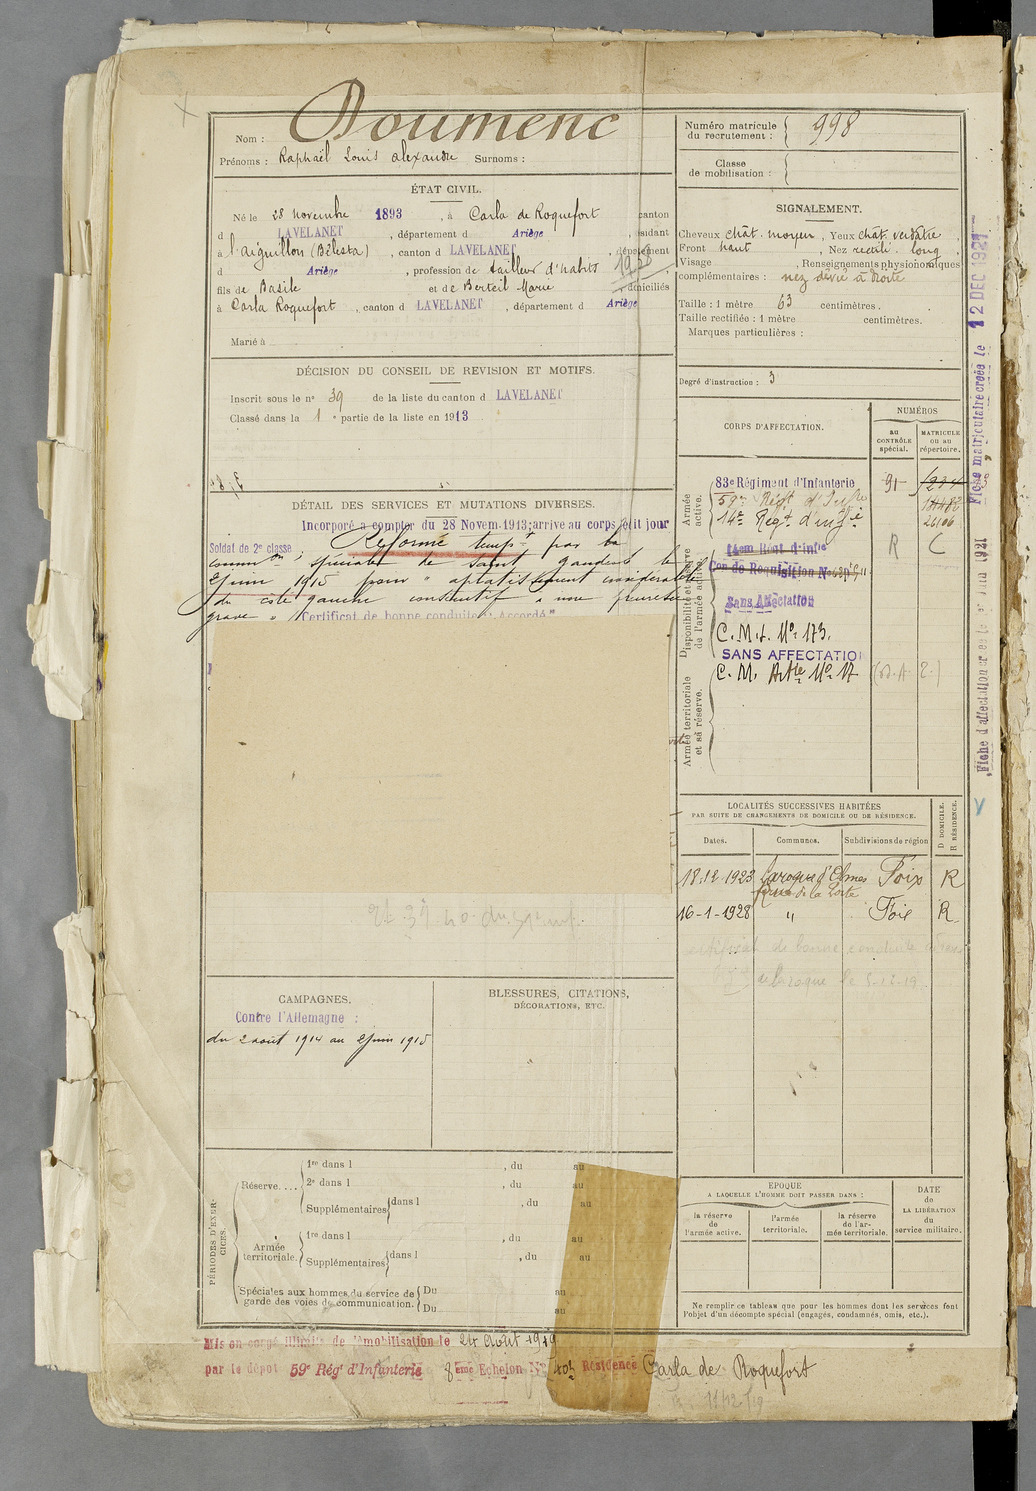 Nom : Doumenc
Prénoms : Raphaël Louis Alexandre Surnoms :
ÉTAT CIVIL.
Né le 28 novembre 1893, à Carla de Roquefort canton
d LAVELANET, département d Ariège, résidant
à l'aiguillon (Bélesta), canton d LAVELANET, département
d Ariège, profession de tailleur d'habits
fils de Basile et de Berteil Marie domiciliés
à Carla Roquefort, canton d LAVELANET, département d Ariège
Marié à
DÉCISION DU CONSEIL DE REVISION ET MOTIFS.
Inscrit sous le n° 39 de la liste du canton d LAVELANET
Classé dans la 1e partie de la liste en 1913
DÉTAIL DES SERVICES ET MUTATIONS DIVERSES.
Incorporé à compter du 28 Novem. 1913; arrive au corps le dit jour
Soldat de 2e classe
Réformé tempt par la
common spéciale de Saint Gaudens le
2 juin 1915 pour " aplatissement considérable
du côté gauche consécutif à une pleurésie
grave " "Certificat de bonne conduite" "Accordé"
CAMPAGNES.
Contre l'Allemagne :
du 2 août 1914 au 2 juin 1915
BLESSURES, CITATIONS,
DÉCORATIONS, ETC.
PÉRIODES D'EXERCICES.
Réserve....
1re dans l , du au
2e dans l , du au
Supplémentaires dans l , du au
Armée territoriale.
1re dans l , du au
Supplémentaires dans l , du au
Spéciales aux hommes du service de garde des voies de communication.
Du au
Du au
Mis en congé illimité de démobilisation le 24 Août 1919
par le dépôt 59e Rég' d'Infanterie 8ème Echelon N° 401 Résidence Carla de Roquefort
Numéro matricule
du recrutement : 998
Classe
de mobilisation :
SIGNALEMENT.
Cheveux chât. moyen, Yeux chât. verdâtre
Front haut, Nez rectil. long
Visage , Renseignements physionomiques
complémentaires : nez dévié à droite
Taille : 1 mètre 63 centimètres.
Taille rectifiée : 1 mètre centimètres.
Marques particulières :
Degré d'instruction : 3
CORPS D'AFFECTATION.
NUMÉROS
au
CONTRÔLE
spécial.
MATRICULE
ou au
répertoire.
Armée active.
83e Régiment d'Infanterie
59e Régt d'Infie
14e Régt d'infie
26106
Disponibilité et réserve de l'armée active
14em Régt d'Infie
R
Con de Requisition
Sans Affectation
C.M.I. N° 173.
SANS AFFECTATION
C.M. Artie N° 17
Armée territoriale et sa réserve.
LOCALITÉS SUCCESSIVES HABITÉES
PAR SUITE DE CHANGEMENTS DE DOMICILE OU DE RÉSIDENCE.
Dates. Communes. Subdivisions de région
D DOMICILE.
R RÉSIDENCE.
18.12.1923 Laroque d'Olmes Foix R
Rue de la Poste
16-1-1928 " Foix R
EPOQUE
A LAQUELLE L'HOMME DOIT PASSER DANS :
la réserve
de
l'armée active.
l'armée
territoriale.
la réserve
de l'ar-
mée territoriale.
DATE
de
LA LIBÉRATION
du
service militaire.
Ne remplir ce tableau que pour les hommes dont les services font
l'objet d'un décompte spécial (engagés, condamnés, omis, etc.).
Fiche matriculaire créée le 12 DEC 1921